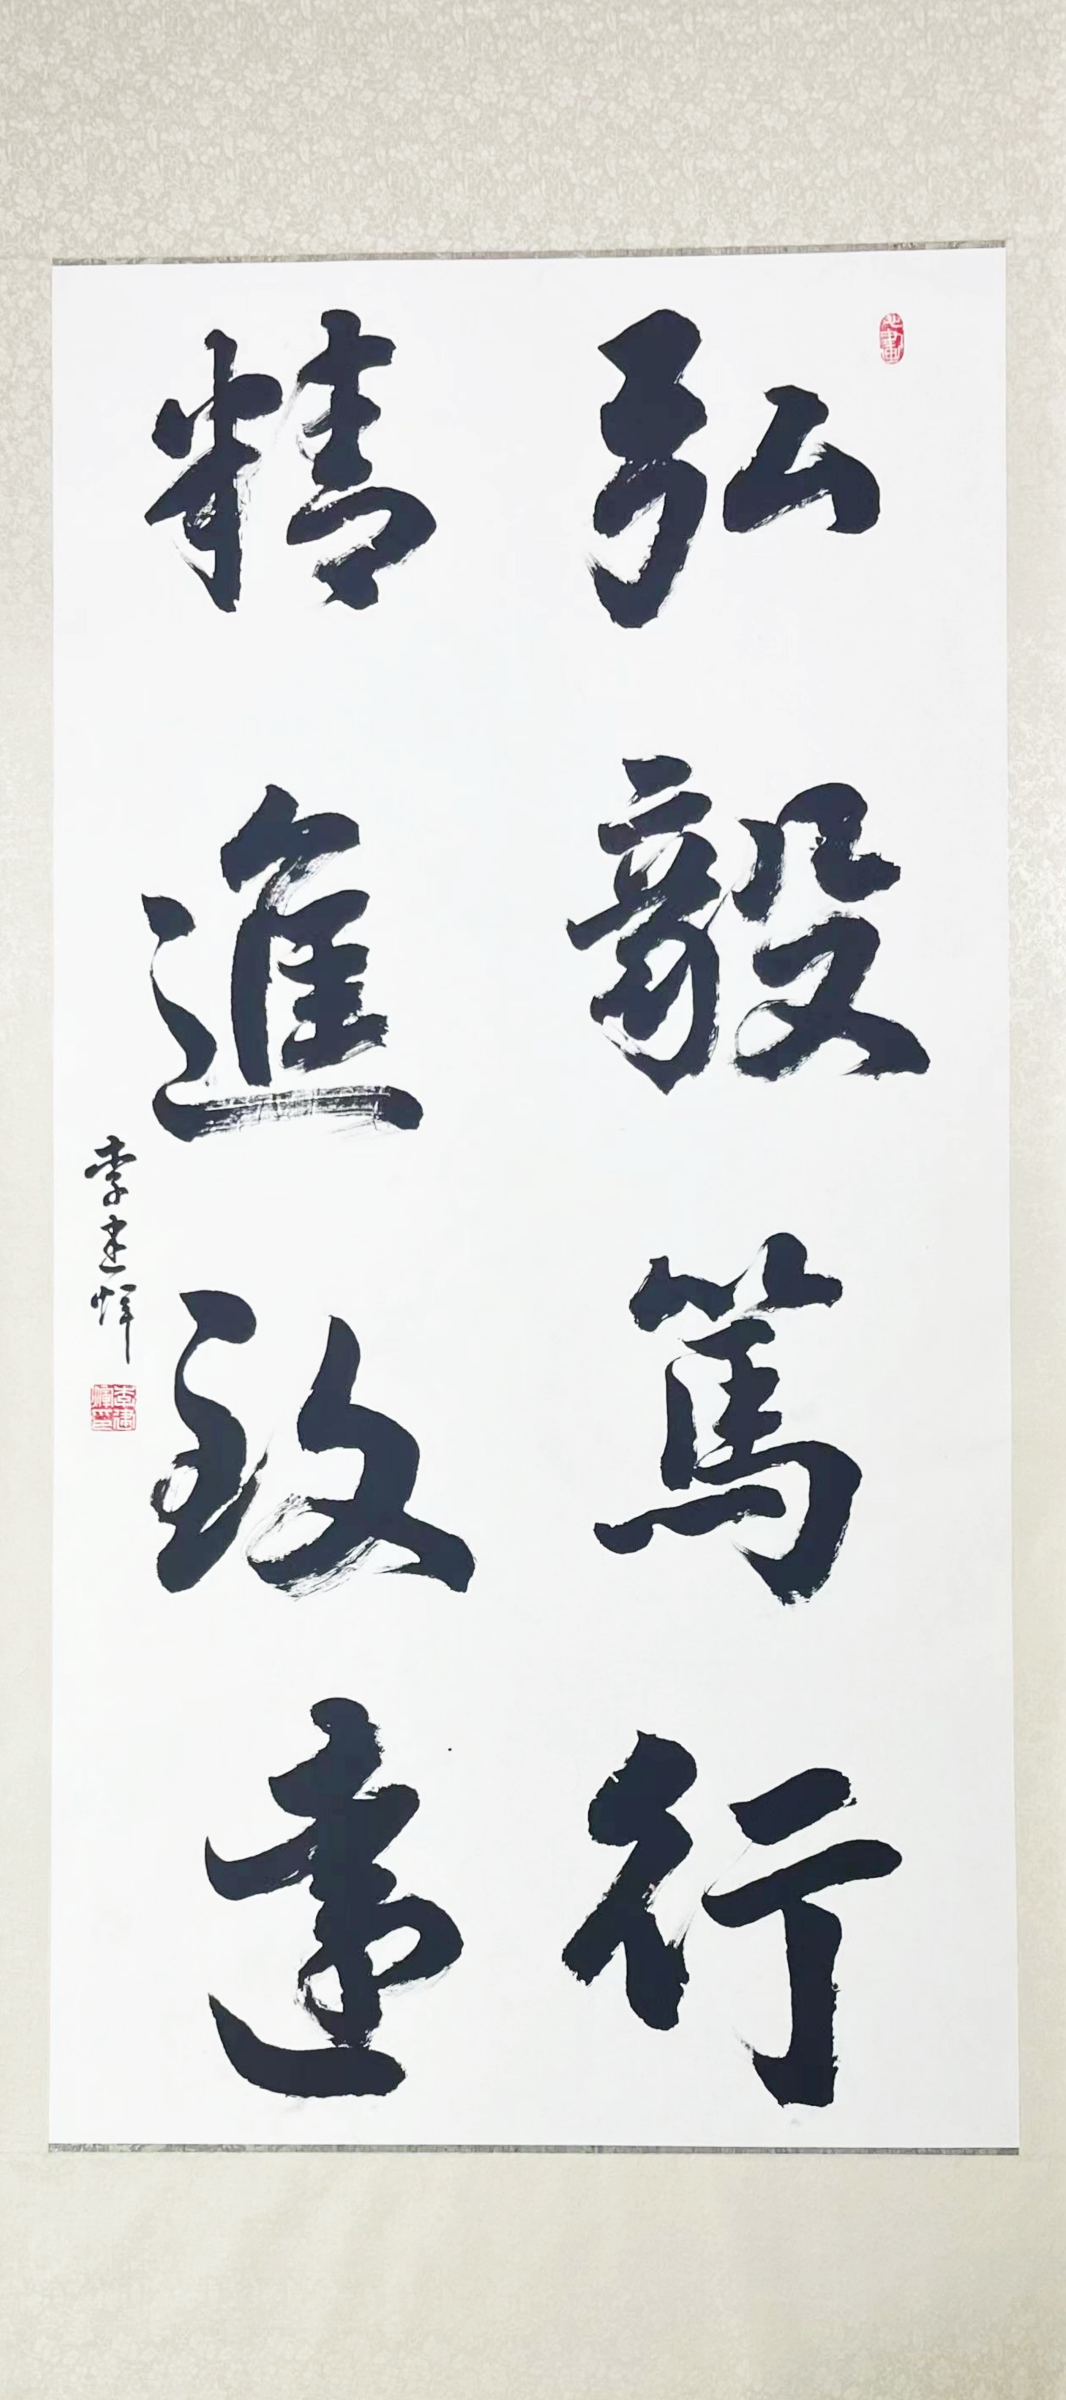 弘毅篤行
精進致遠
李建輝